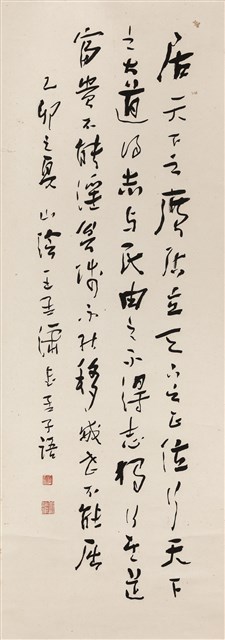 居天下之廣居立天下之正位行天下
之大道得志与民由之不得志獨行其道
富貴不能淫貧賤不能移威武不能屈
乙卯之夏山陰王書孟子語